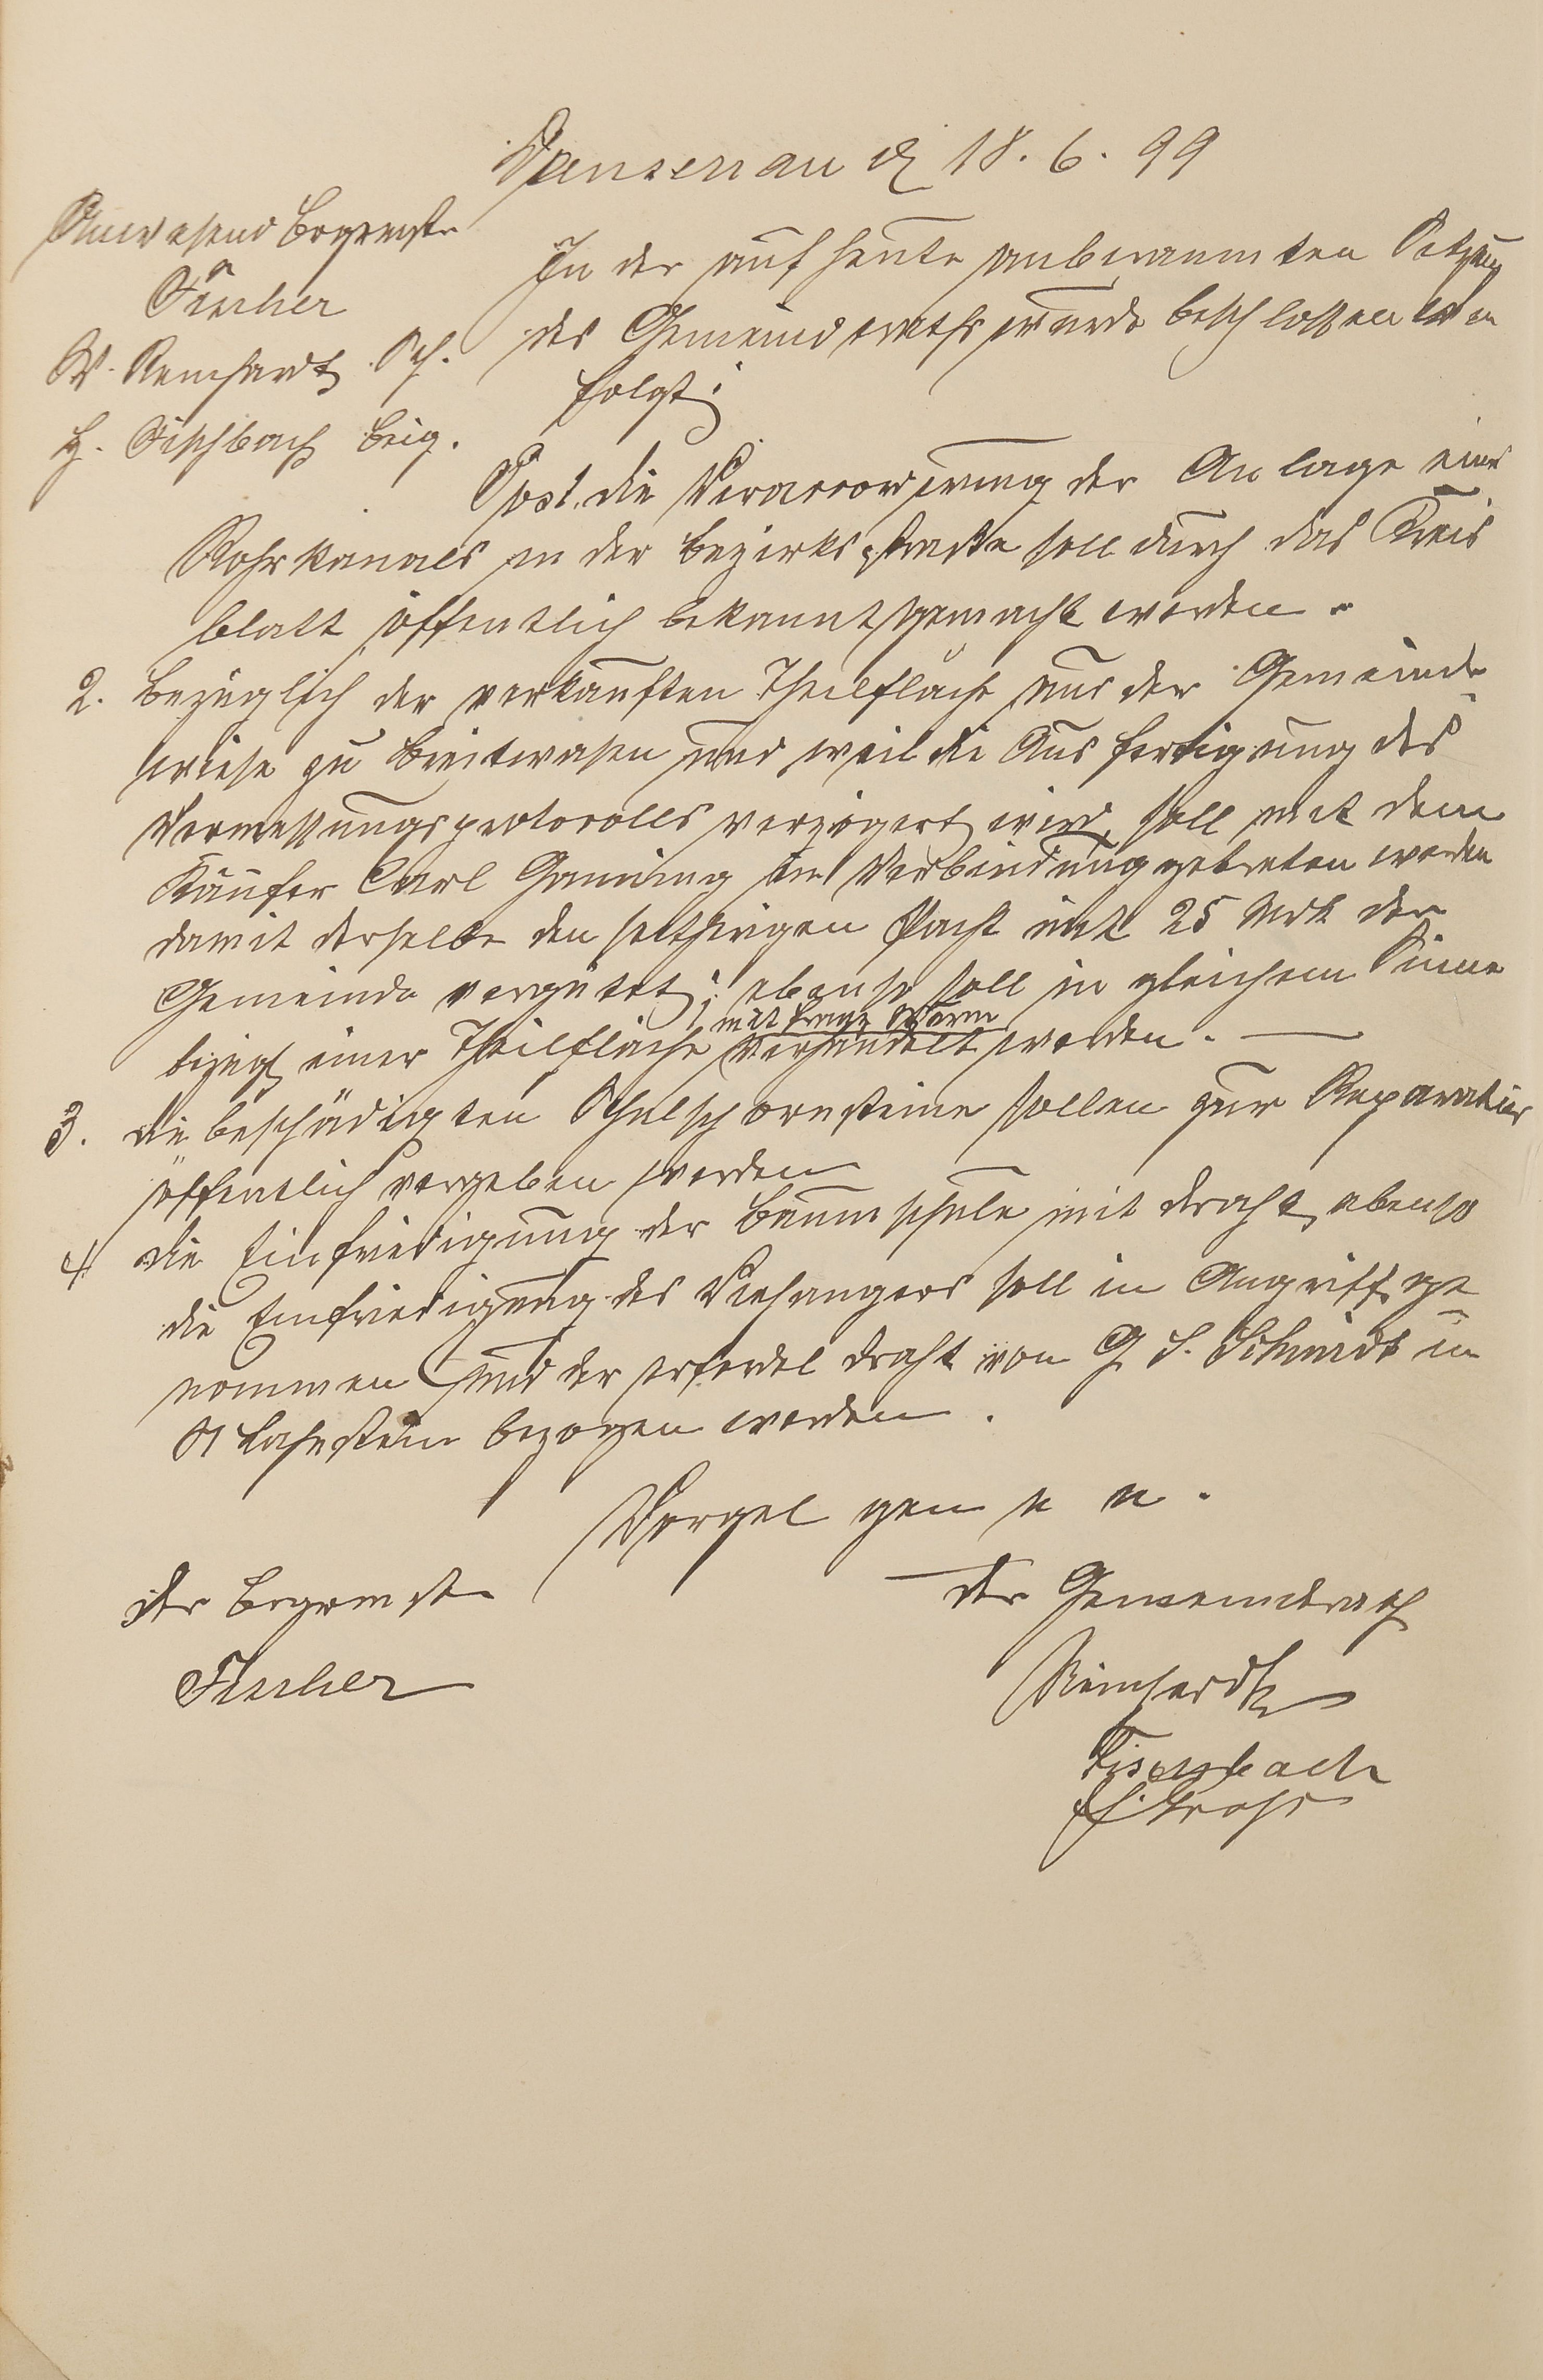 Dausenau d 18. 6. 99
Anwesend Bogrmstr
Fischer
W. Reinhardt Sch.
H. Fischbach Beig.
In der auf heute anberaumten Sitzung
des Gemeindraths wurde beschlossen wie
folgt:
Pos 1. die Veraccordirung der Anlage eines
Rohrkanals in der Bezirksstraße soll durch das Kreis
blatt öffentlich bekannt gemacht werden.
2. Bezüglich der verkauften Theilfläche aus der Gemeinde
wiese zu Breitwasen und weil die Ausfertigung des
Vermessungsprotocolls verzögert wird, soll mit dem
Käufer Carl in Verbindung getreten werden
damit derselbe den seitherigen Pacht mit 25 Mrk der
Gemeinde vergütet; ebenso soll in gleichem Sinne
mit Franz
bezügl einer Theilfläche verhandelt werden. —
3. die beschädigten Schulschornsteine sollen zur Reparatur
öffentlich vergeben werden
4 die Einfriedigung der Baumschule mit Draht, ebenso
die Einfriedigung des Viehangers soll in Angriff ge
nommen und der erforderl Draht von G. S. Schmidt in
N Lahnstein bezogen werden.
Vorgel gen u u.
Der Bogrmstr
Fischer
Der Gemeinderath
Reinhardt
Fischbach